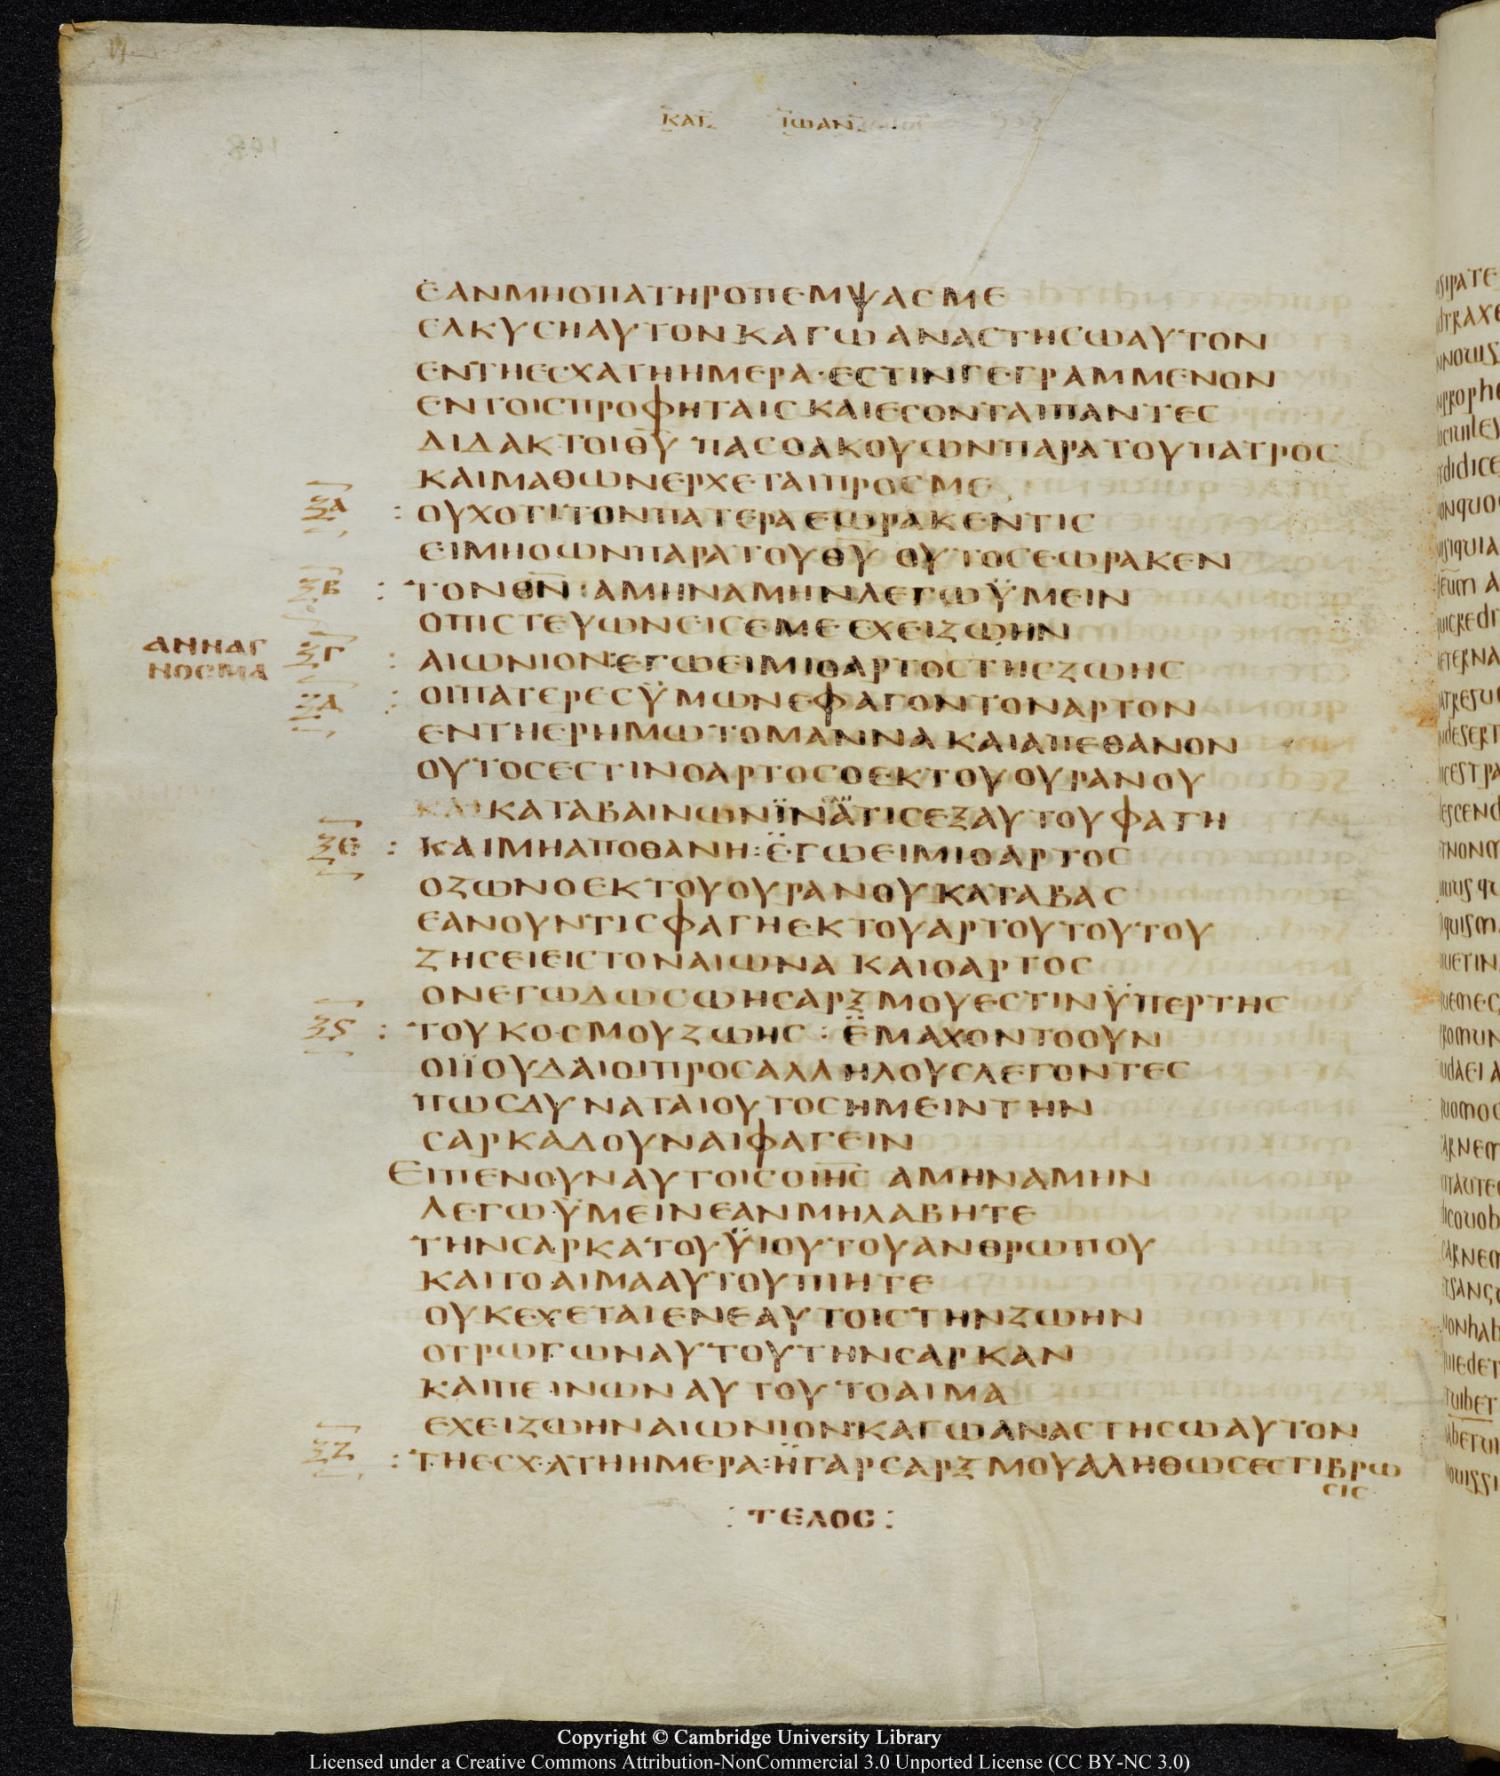 ΚΑΤ ΙΩΑΝ
ΕΑΝΜΗΟΠΑΤΗΡΟΠΕΜΨΑΣΜΕ
ΕΛΚΥΣΗΑΥΤΟΝ ΚΑΓΩ ΑΝΑΣΤΗΣΩΑΥΤΟΝ
ΕΝΤΗΕΣΧΑΤΗΗΜΕΡΑ·ΕΣΤΙΝΓΕΓΡΑΜΜΕΝΟΝ
ΕΝΤΟΙΣΠΡΟΦΗΤΑΙΣ ΚΑΙΕΣΟΝΤΑΙΠΑΝΤΕΣ
ΔΙΔΑΚΤΟΙΘΥ ΠΑΣΟΑΚΟΥΩΝΠΑΡΑΤΟΥΠΑΤΡΟΣ
ΚΑΙΜΑΘΩΝΕΡΧΕΤΑΙΠΡΟΣΜΕ
ΞΑ : ΟΥΧΟΤΙΤΟΝΠΑΤΕΡΑΕΩΡΑΚΕΝΤΙΣ
ΕΙΜΗΟΩΝΠΑΡΑΤΟΥΘΥ ΟΥΤΟΣΕΩΡΑΚΕΝ
ΞΒ : ΤΟΝΘΝ : ΑΜΗΝΑΜΗΝΛΕΓΩΫΜΕΙΝ
ΟΠΙΣΤΕΥΩΝΕΙΣΕΜΕ ΕΧΕΙΖΩΗΝ
ΑΝΝΑΓ
ΝΟΣΜΑ
ΞΓ : ΑΙΩΝΙΟΝ:ΕΓΩΕΙΜΙΟΑΡΤΟΣΤΗΣΖΩΗΣ
ΞΔ : ΟΙΠΑΤΕΡΕΣΫΜΩΝΕΦΑΓΟΝΤΟΝΑΡΤΟΝ
ΕΝΤΗΕΡΗΜΩΤΟΜΑΝΝΑ ΚΑΙΑΠΕΘΑΝΟΝ
ΟΥΤΟΣΕΣΤΙΝΟΑΡΤΟΣΟΕΚΤΟΥΟΥΡΑΝΟΥ
ΚΑΙΚΑΤΑΒΑΙΝΩΝΪΝΑΤΙΣΕΞΑΥΤΟΥΦΑΓΗ
ΞΕ : ΚΑΙΜΗΑΠΟΘΑΝΗ:ΕΓΩΕΙΜΙΟΑΡΤΟΣ
ΟΖΩΝΟΕΚΤΟΥΟΥΡΑΝΟΥ ΚΑΤΑΒΑΣ
ΕΑΝΟΥΝΤΙΣΦΑΓΗΕΚΤΟΥΑΡΤΟΥΤΟΥΤΟΥ
ΖΗΣΕΙΕΙΣΤΟΝΑΙΩΝΑ ΚΑΙΟΑΡΤΟΣ
ΟΝΕΓΩΔΩΣΩΗΣΑΡΞΜΟΥΕΣΤΙΝΫΠΕΡΤΗΣ
Ξϛ : ΤΟΥΚΟΣΜΟΥΖΩΗΣ : ΕΜΑΧΟΝΤΟΟΥΝ
ΟΙΪΟΥΔΑΙΟΙΠΡΟΣΑΛΛΗΛΟΥΣΛΕΓΟΝΤΕΣ
ΠΩΣΔΥΝΑΤΑΙΟΥΤΟΣΗΜΕΙΝΤΗΝ
ΣΑΡΚΑΔΟΥΝΑΙΦΑΓΕΙΝ
ΕΙΠΕΝΟΥΝΑΥΤΟΙΣΟΙΗΣ ΑΜΗΝΑΜΗΝ
ΛΕΓΩΫΜΕΙΝΕΑΝΜΗΛΑΒΗΤΕ
ΤΗΝΣΑΡΚΑΤΟΥΫΙΟΥΤΟΥΑΝΘΡΩΠΟΥ
ΚΑΙΤΟΑΙΜΑΑΥΤΟΥΠΙΗΤΕ
ΟΥΚΕΧΕΤΑΙΕΝΕΑΥΤΟΙΣΤΗΝΖΩΗΝ
ΟΤΡΩΓΩΝΑΥΤΟΥΤΗΝΣΑΡΚΑΝ
ΚΑΙΠΕΙΝΩΝΑΥΤΟΥΤΟΑΙΜΑ
ΕΧΕΙΖΩΗΝΑΙΩΝΙΟΝ·ΚΑΓΩΑΝΑΣΤΗΣΩΑΥΤΟΝ
ΞΖ : ΤΗΕΣΧΑΤΗΗΜΕΡΑ:ΗΓΑΡΣΑΡΞΜΟΥΑΛΗΘΩΣΕΣΤΙΒΡΩ
ΣΙΣ
: ΤΕΛΟΣ :
Copyright © Cambridge University Library
Licensed under a Creative Commons Attribution-NonCommercial 3.0 Unported License (CC BY-NC 3.0)